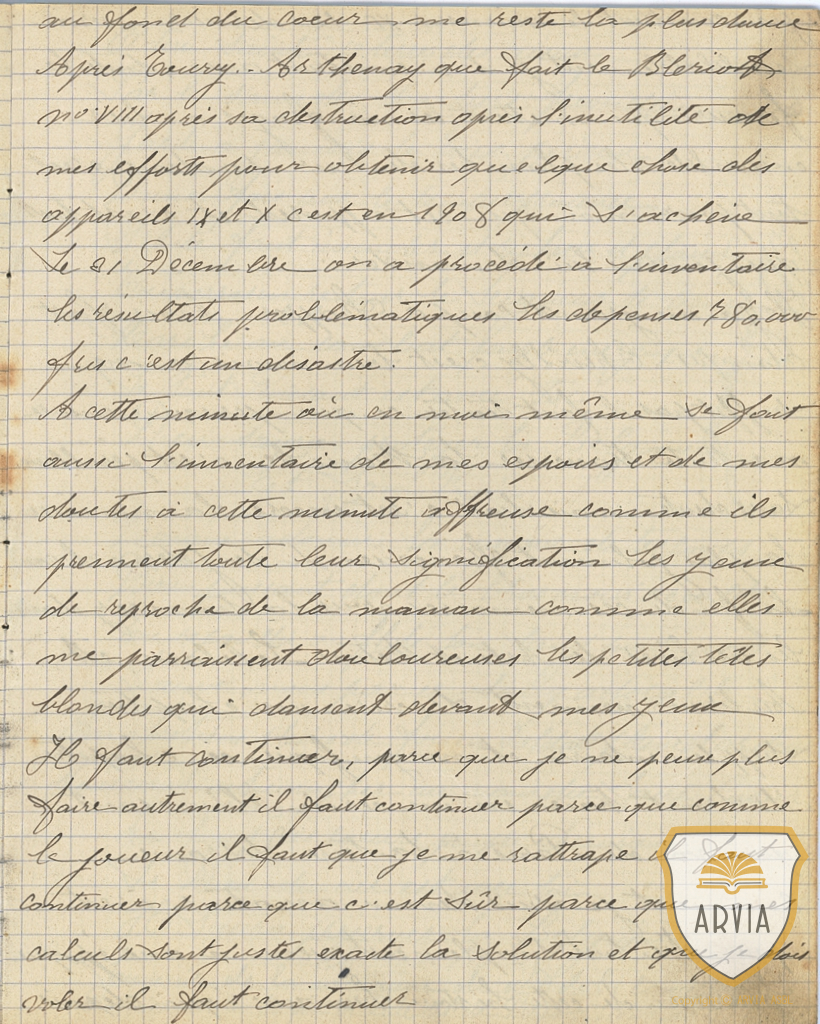 au fond du coeur me reste la plus douce
Après Toury.. Arthenay que fait le Bleriot
n° VIII après sa destruction après l'inutilité de
mes efforts pour obtenir quelque chose des
appareils IX et X c'est en 1908 qui s'achève
Le 31 Décembre on a procédé à l'inventaire
les résultats problématiques les depenses 780,000
frcs c'est un désastre.
A cette minute où en moi même se fait
aussi l'inventaire de mes espoirs et de mes
doutes à cette minute affreuse comme ils
prennent toute leur signification les yeux
de reproche de la maman comme elles
me parraissent douloureuses les petites têtes
blondes qui dansent devant mes yeux
Il faut continuer, parce que je ne peux plus
faire autrement il faut continuer parce que comme
le joueur il faut que je me rattrape il faut
continuer parce que c'est sûr parce que mes
calculs sont justes exacte la solution et que je dois
voler il faut continuer
ARVIA